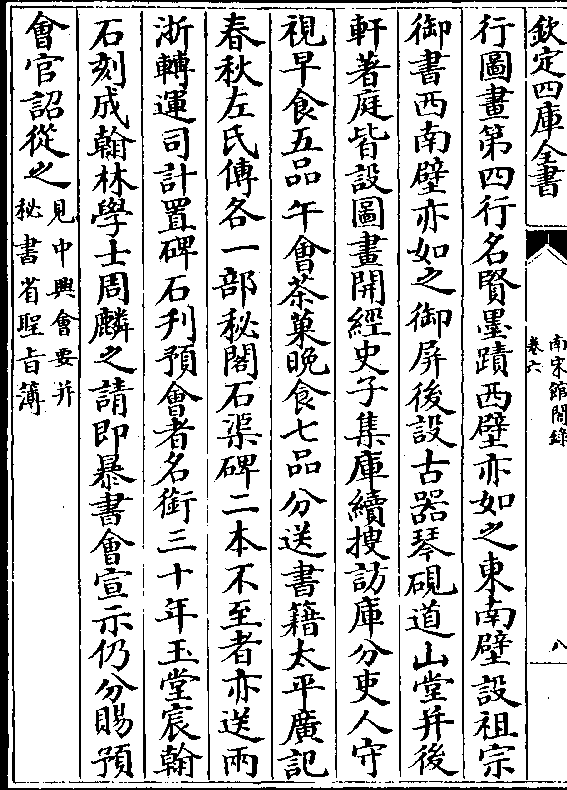 欽定四庫全書
南宋館閣錄
卷六
八
行圖畫第四行名賢墨蹟西壁亦如之東南壁設祖宗
御書西南壁亦如之御屏後設古器琴硯道山堂并後
軒著庭皆設圖畫開經史子集庫續搜訪庫分吏人守
視早食五品午會茶菓晚食七品分送書籍太平廣記
春秋左氏傳各一部秘閣石渠碑二本不至者亦送兩
浙轉運司計置碑石刋預會者名銜三十年玉堂宸翰
石刻成翰林學士周麟之請即暴書會宣示仍分賜預
會官詔從之見中興會要并
秘書省聖旨簿